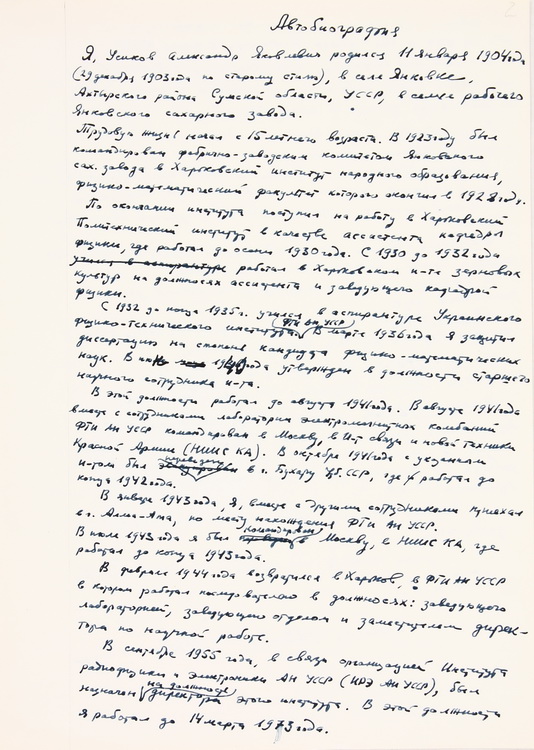 2
Автобиография
Я, Усиков Александр Яковлевич родился 11 января 1904 года
(29 декабря 1903 года по старому стилю), в селе Янковке,
Ахтырского района Сумской области, УССР, в семье рабочего
Янковского сахарного завода.
Трудовую жизнь начал с 15 летнего возраста. В 1923 году был
командирован фабрично-заводским комитетом Янковского
сах. завода в Харьковский институт народного образования,
физико-математический факультет которого окончил в 1928 году.
По окончании института поступил на работу в Харьковский
Политехнический институт в качестве ассистента кафедры
физики, где работал до осени 1930 года. С 1930 до 1932 года
учился в аспирантуре работал в Харьковском и-те зерновых
культур на должностях ассистента и заведующего кафедрой
физики.
С 1932 до конца 1935 г. учился в аспирантуре Украинского
физико-технического института (ФТИ АН УССР). В марте 1936 года я защитил
диссертацию на степень кандидата физико-математических
наук. В года утвержден в должности старшего
научного сотрудника и-та.
В этой должности работал до августа 1941 года. В августе 1941 года
вместе с сотрудниками лаборатории электромагнитных колебаний
ФТИ АН УССР командирован в Москву, в И-т связи и новой техники
Красной Армии (НИИС КА). В октябре 1941 года с указанным
и-том был переведен в г. Бухару Уз.ССР, где работал до
конца 1942 года.
В январе 1943 года, я, вместе с другими сотрудниками приехал
в г. Алма-Ата, по месту нахождения ФТИ АН УССР.
В июле 1943 года я был командирован в Москву, в НИИС КА, где
работал до конца 1943 года.
В феврале 1944 года возвратился в Харьков, в ФТИ АН УССР
в котором работал последовательно в должностях: заведующего
лабораторией, заведующего отделом и заместителем дирек-
тора по научной работе.
В сентябре 1955 года, в связи организацией Института
радиофизики и электроники АН УССР (ИРЭ АН УССР), был
назначен на должность директора этого института. В этой должности
я работал до 14 марта 1973 года.